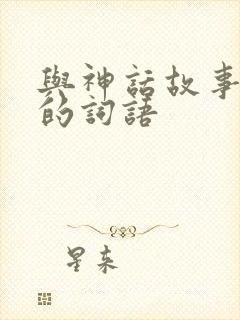 與神話故事
的詞語
星來